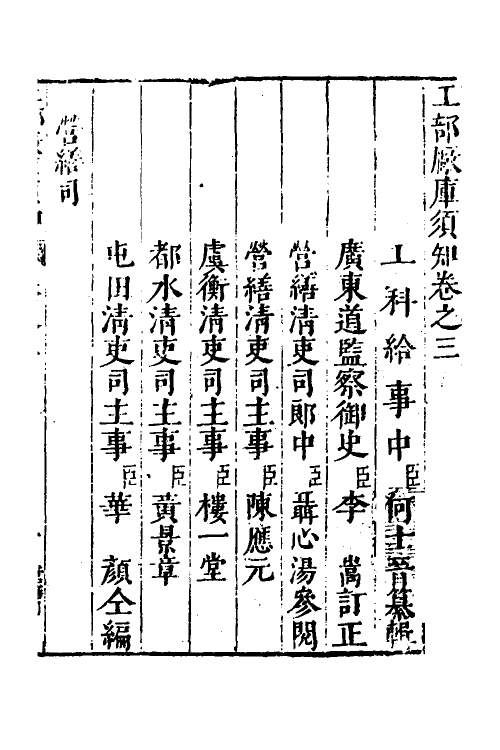 工部廠庫須知卷之三
工科給事中臣何士晉纂輯
廣東道監察御史臣李嵩訂正
營繕清吏司郎中臣聶心湯參閱
營繕清吏司主事臣陳應元
虞衡清吏司主事臣樓一堂
都水清吏司主事臣黃景章
屯田清吏司主事臣華顏仝編
營繕司